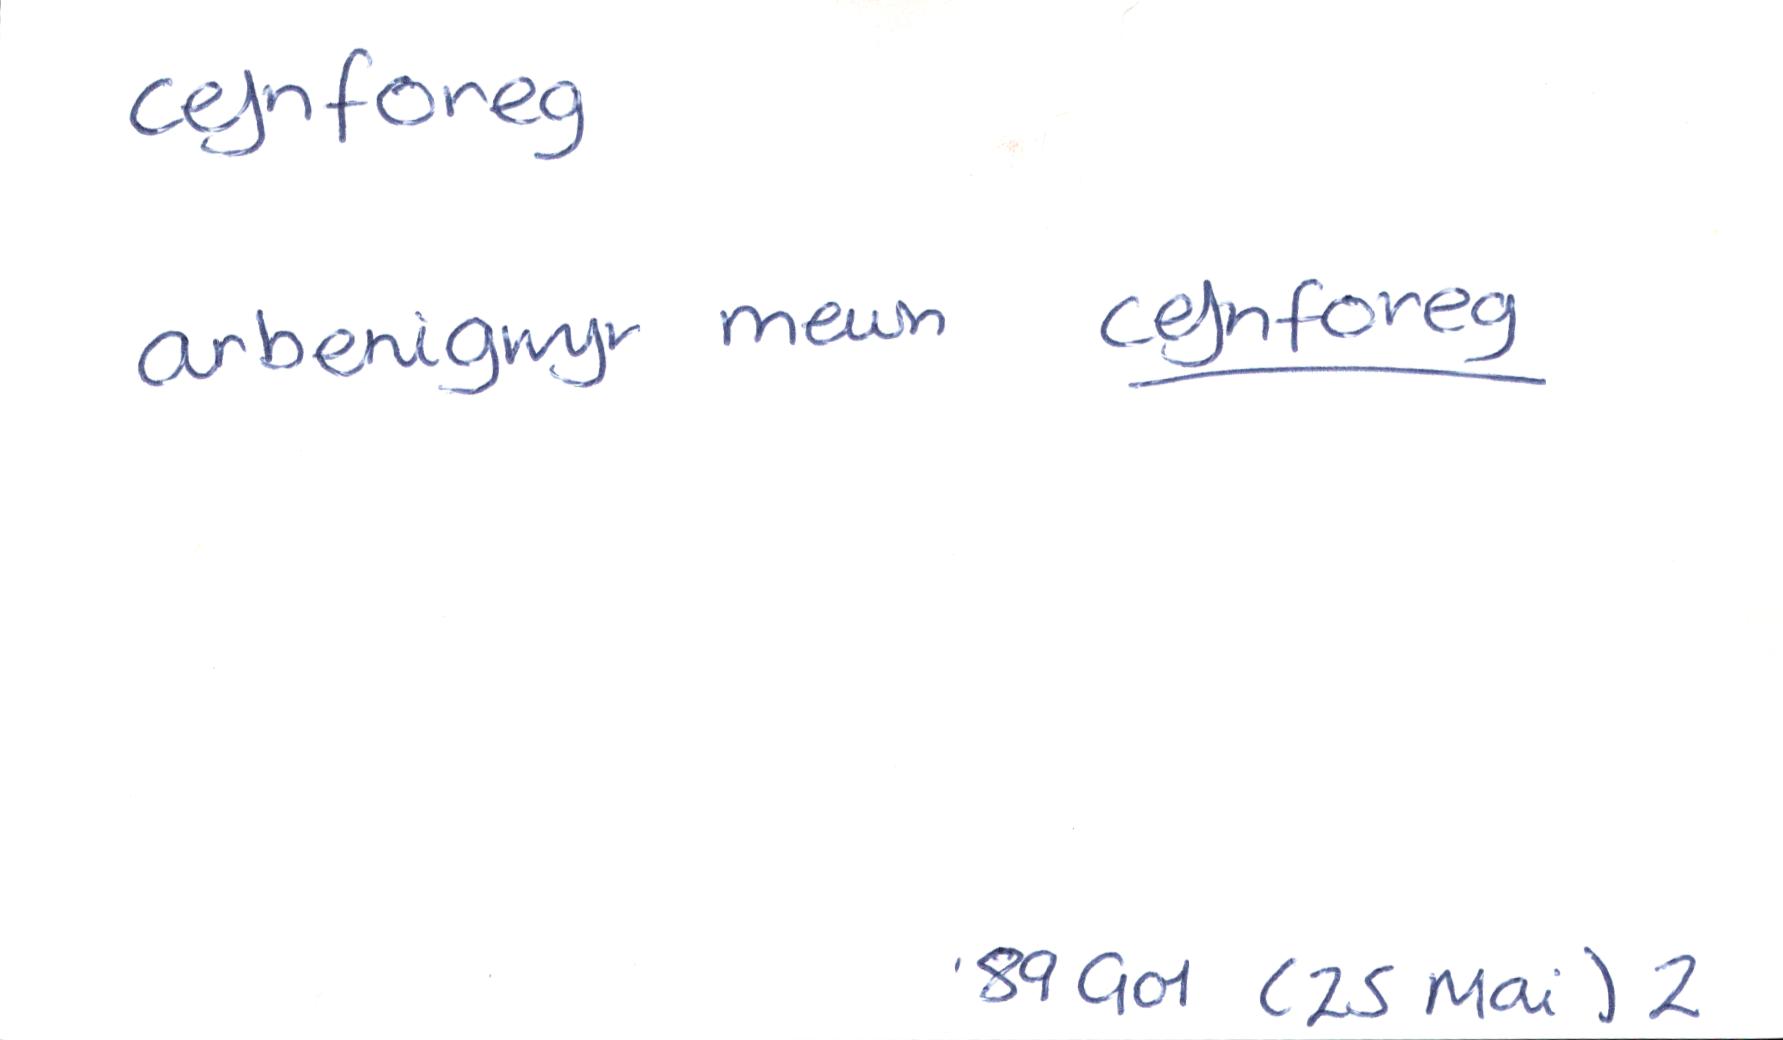 cefnforeg
arbenigwyr mewn cefnforeg
'89 Gol (25 Mai) 2